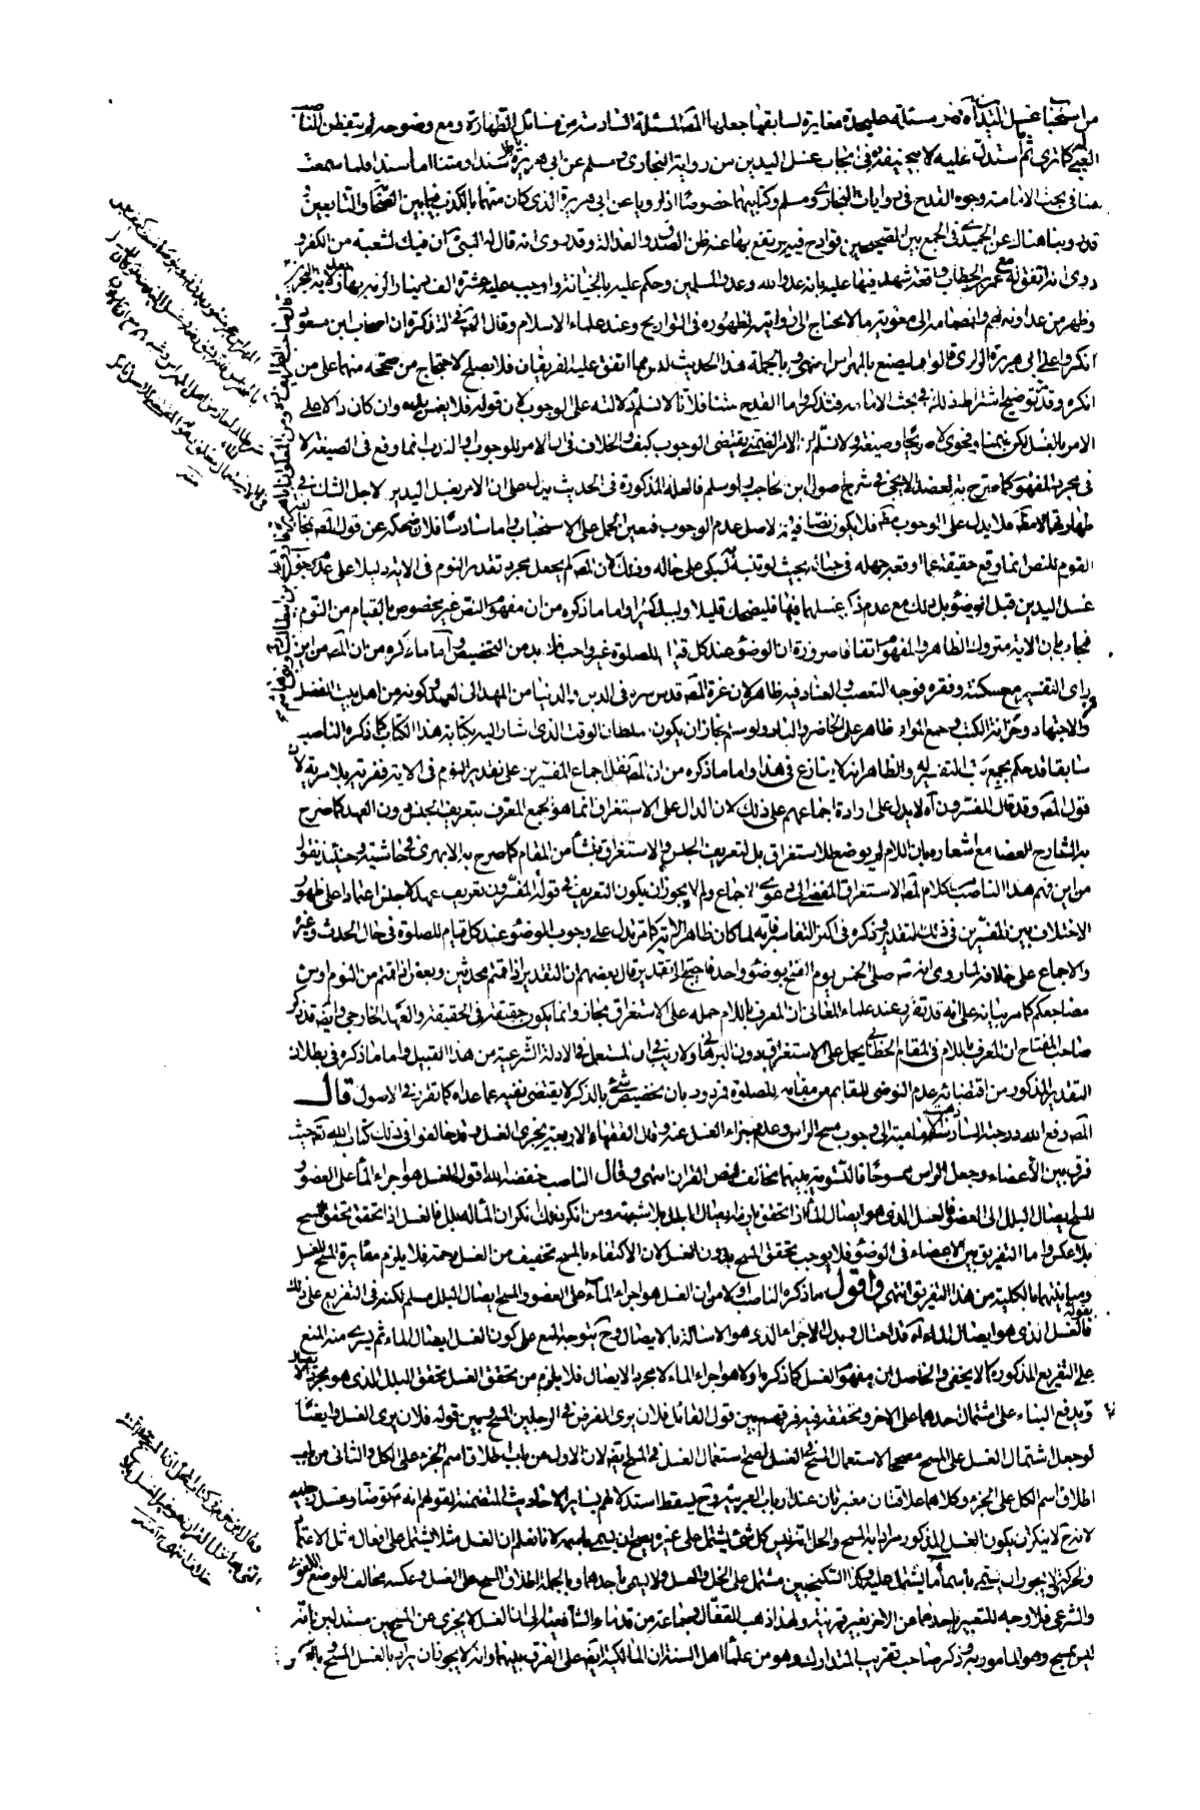 من استحباب غسل اليد آه فهو مسئلة عليحدة مغايرة لسابقها جعلها المصـ المسئلة السادسة من مسائل الطهارة ومع وضوحه لم يتفطن الناصب
الغبي كما ترى ثم ما استدل عليه لابيحنيفة في ايجاب غسل اليدين من رواية البخاري ومسلم عن ابي هريرة سندا ومتنا اما سندا فلما سمعت
منا في بحث الامامة من وجوه القدح في روايات البخاري ومسلم وكتابيهما خصوصا اذا رويا عن ابي هريرة الذي كان متهما بالكذب فيما بين الصحابة والتابعين
قد روينا هناك عن الحميدي في الجمع بين الصحيحين قوادح فيه يرتفع بها عنه ظن الصدق والعدالة وقد روى انه قال له النبي ص ان فيك لشعبة من الكفر و
روى انه اتفق له مع عمر بن الخطاب واقعة شهد فيها عليه بانه عدو الله وعدو المسلمين وحكم عليه بالخيانة واوجب عليه عشرة الف دينار الزمه بها
وظهر من عداوته لهم وانضمامه الى معوية ما لا يحتاج الى رواية لظهوره في التواريخ وعند علماء الاسلام وقال الغزالي ذكره ان اصحاب ابن مسعود
انكروا على ابي هريرة الراوي قالوا ما يصنع بالمهراس انتهى وبالجملة هذا الحديث ليس مما اتفق عليه الفريقان فلا يصلح للاحتجاج من صححه منهما على من
انكره وقد مر توضيح اشتراط ذلك في بحث الامامة فتذكر واما القدح متنا فلانا لا نسلم دلالته على الوجوب لان قوله فلا يغمس يده وان كان دالا على
الامر بالغسل لكن بمعناه وفحواه لا صريحا وصيغة ولا نسلم ان الامر الضمني يقتضي الوجوب كيف والخلاف في ان الامر للوجوب او الندب انما وقع في الصيغة لا
في مجرد المفهوم كما صرح به العضد الايجي في شرح اصول ابن الحاجب ولو سلم فالعلة المذكورة في الحديث يدل على ان الامر بغسل اليدين لاجل الشك في
طهارتهما فلا يدل على الوجوب فلا يكون نصا فيه والاصل عدم الوجوب فتعين الحمل على الاستحباب واما سادسا فلان ضحكه عن قول المصـ
القوم للنص انما وقع حقيقة عما وقع من جهله في جنابه بحيث لو تنبه لبكى على حاله وذلك لان المصـ لم يجعل مجرد تقدير النوم في الاية دليلا على عدم وجوب
غسل اليدين قبل الوضوء بل ذلك مع عدم ذكر غسلهما فيها فليضحك قليلا وليبك كثيرا واما ما ذكره من ان مفهوم النص غير مخصوص بالقيام من النوم
فمجاب بان الاية متروك الظاهر والمفهوم اتفاقا ضرورة ان الوضوء عند كل قيام للصلوة غير واجب فلا بد من التخصيص واما ما ذكره من ان المصـ من اين
راى التفسير مع مسكنته وفقره فوجه التعصب والعناد فيه ظاهر لان عزة المصـ قدس سره في الدين والدنيا من المهد الى العهد وكونه من اهل بيت الفضل
والاجتهاد وخزانة الكتب وجمع المواد ظاهر على الحاضر والباد ولو سلم فجاز ان يكون سلطان الوقت الذي اشار اليه بكتابة هذا الكتاب كما ذكره الناصب
سابقا قد حكم بجميع كتب التفسير له والظاهر انه لا ينازع في هذا واما ما ذكره من ان المصـ نقل اجماع المفسرين على تقدير النوم في الاية ففرية بلا مرية لان
قول المصـ وقد قال المفسرون آه لا يدل على ارادة اجماعهم على ذلك لان الدال على الاستغراق انما هو الجمع المعرف بتعريف الجنس دون العهد كما صرح
به الشارح العضد مع اشعاره بان اللام لم يوضع للاستغراق بل لتعريف الجنس والاستغراق ينشأ من المقام كما صرح به الابهري في حاشيته وحينئذ نقول
من اين فهم هذا الناصب كلام المصـ الاستغراق المفضي الى دعوى الاجماع ولم لا يجوز ان يكون التعريف في قوله المفسرون تعريف عهد او جنس اعتمادا على ظهور
الاختلاف بين المفسرين في ذلك التقدير وذكره في اكثر التفاسير فانه لما كان ظاهر الاية كما مر تدل على وجوب الوضوء عند كل قيام للصلوة في حال الحدث وغيره
والاجماع على خلافه لما روى انه ص صلى الخمس يوم الفتح بوضوء واحد فاحتيج الى تقدير قال بعضهم ان التقدير اذا قمتم محدثين وبعضهم اذا قمتم من النوم او من
مضاجعكم كما مر بيانه على انه قد تقرر عند علماء المعاني ان المعرف باللام حمله على الاستغراق مجاز وانما يكون حقيقة في الحقيقة والعهد الخارجي وايضا قد ذكر
صاحب المفتاح ان المعرف باللام في المقام الخطابي يحمل على الاستغراق دون البرهاني ولا ريب في ان المستعمل في الادلة الشرعية من هذا القبيل واما ما ذكره في بطلان
التقدير المذكور من اقتضائه عدم التوضي للقائم من مقامه للصلوة فمردود بان تخصيص شيء بالذكر لا يقتضي نفيه عما عداه كما تقرر في الاصول قال
المصـ رفع الله درجته السادس ذهبت الامامية الى وجوب مسح الراس وعدم اجزاء الغسل عنه وقال الفقهاء الاربعة يجزي الغسل وقد خالفوا في ذلك كتاب الله تعـ حيث
فرق بين الاعضاء وجعل الراس ممسوحا فالتسوية بينهما مخالف لنص القران انتهى وقال الناصب خفضه الله اقول الغسل هو اجراء الماء على العضو و
المسح ايصال البلل الى العضو فالغسل الذي هو ايصال الماء اذا تحقق يلزمه ايصال البلل بلا شبهة ومن انكر ذلك انكر ان الماء له بلل فالغسل اذا تحقق تحقق المسح
بلا عكس واما التفريق بين الاعضاء في الوضوء فلا يوجب تحقق المسح بدون الغسل لان الاكتفاء بالمسح تخفيف من الغسل رحمة فلا يلزم مغايرة المسح للغسل
ومباينتهما بالكلية من هذا التفريق انتهى واقول ما ذكره الناصب اولا من ان الغسل هو اجراء الماء على العضو والمسح ايصال البلل مسلم لكنه في التفريع على ذلك
بقوله فالغسل الذي هو ايصال الماء آه قد احتال وبدل الاجراء الذي هو الاسالة بالايصال وح يتوجه المنع على كون الغسل ايصال الماء ثم يسري منه المنع
على التفريع المذكور كما لا يخفى والحاصل ان مفهوم الغسل كما ذكره اولا هو اجراء الماء لا مجرد الايصال فلا يلزم من تحقق الغسل تحقق البلل الذي هو مجرد الايصال
ويدفع البناء على اشتمال احدهما على الاخر وتحققه فيه فرقهم بين قول القائل فلان يرى الفرض في الرجلين المسح وبين قوله فلان يرى الغسل وايضا
لو جعل اشتمال الغسل على المسح مصححا لاستعمال المسح في الغسل لصح استعمال الغسل في المسح ايضا لان الاول من باب اطلاق اسم الجزء على الكل والثاني من باب
اطلاق اسم الكل على الجزء وكلاهما علاقتان معتبرتان عند ارباب العربية وح يسقط استدلالهم بسائر الاحاديث المتضمنة لقولهم انه ص توضأ وغسل رجليه
لانه ح لا ينكر ان يكون الغسل المذكور مرادا به المسح والحل انه ليس كل شيء يشتمل على غيره يصح ان يسمى باسمه لانا نعلم ان الغسل مثلا يشتمل على افعال مثل الاعتماد
والحركة ولا يجوز ان يسمى باسم ما يشتمل عليه وكذا السكنجبين مشتمل على الخل والعسل ولا يسمى باحدهما وبالجملة اطلاق المسح على الغسل وعكسه مخالف للوضع اللغوي
والشرعي فلا وجه للتعبير باحدهما عن الاخر بغير قرينة ولهذا ذهب القفال وجماعة من قدماء الشافعية الى ان الغسل لا يجزي عن المسح مستدلين بانه
ليس بمسح وهو المامور به وذكر صاحب تقريب المتدارك وهو من علماء اهل السنة ان المالكية ايضا على الفرق بينهما وانه لا يجوز ان يراد بالغسل المسح بالرأس و